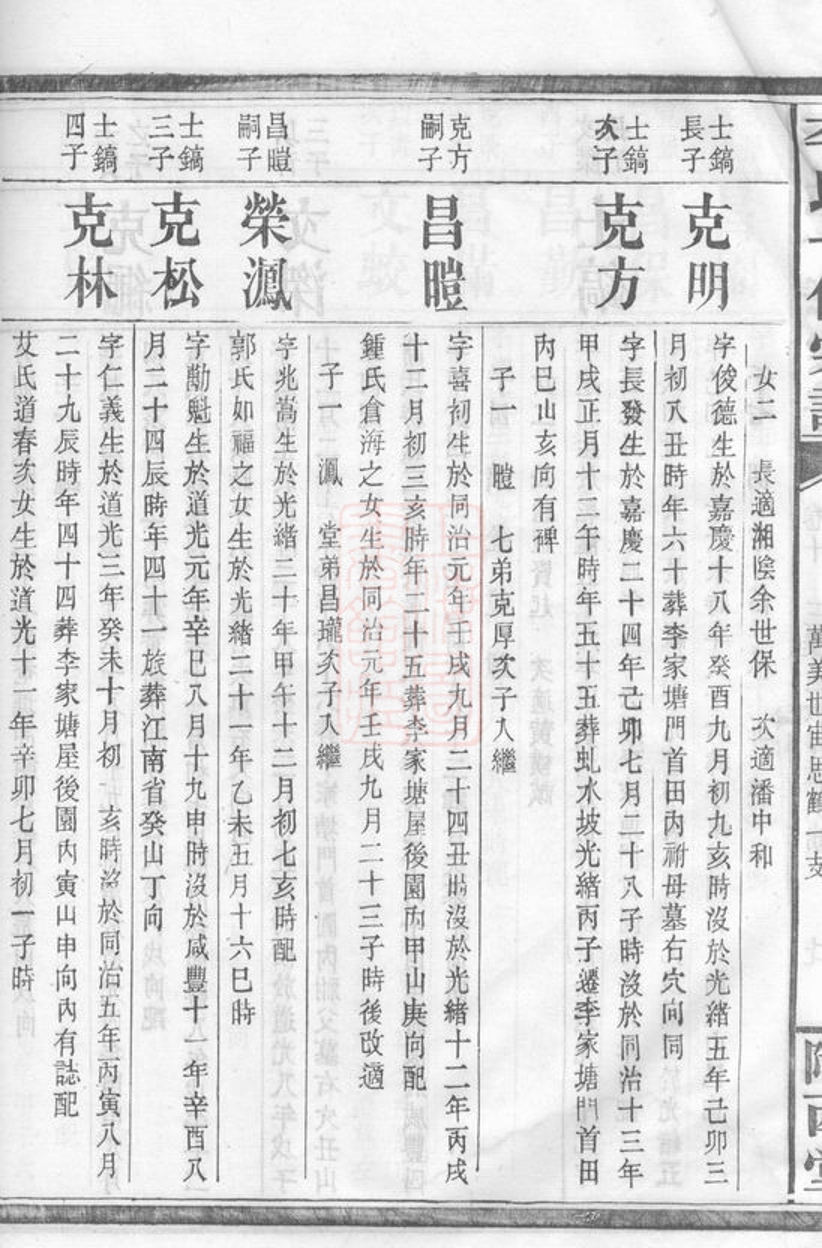 女二 長適湘陰余世保 次適潘中和
士鎬長子
克明
字俊德生於嘉慶十八年癸酉九月初九亥時沒於光緒五年己卯三
月初八丑時年六十葬李家塘門首田內祔母墓右穴向同
士鎬次子
克方
字長發生於嘉慶二十四年己卯七月二十八子時沒於同治十三年
甲戌正月十二午時年五十五葬虬水坡光緒丙子遷李家塘門首田
內巳山亥向有碑
子一 暟 七弟克厚次子入繼
克方嗣子
昌暟
字喜初生於同治元年壬戌九月二十四丑時沒於光緒十二年丙戌
十二月初三亥時年二十五葬李家塘屋後園內甲山庚向配
鍾氏倉海之女生於同治元年壬戌九月二十三子時後改適
子一 鳳 堂弟昌瓏次子入繼
昌暟嗣子
榮鳳
字兆嵩生於光緒二十年甲午十二月初七亥時配
郭氏如福之女生於光緒二十一年乙未五月十六巳時
士鎬三子
克松
字勱魁生於道光元年辛巳八月十九申時沒於咸豐十一年辛酉八
月二十四辰時年四十一旅葬江南省癸山丁向
士鎬四子
克林
字仁義生於道光三年癸未十月初十亥時沒於同治五年丙寅八月
二十九辰時年四十四葬李家塘屋後園內寅山申向內有誌配
艾氏道春次女生於道光十一年辛卯七月初一子時